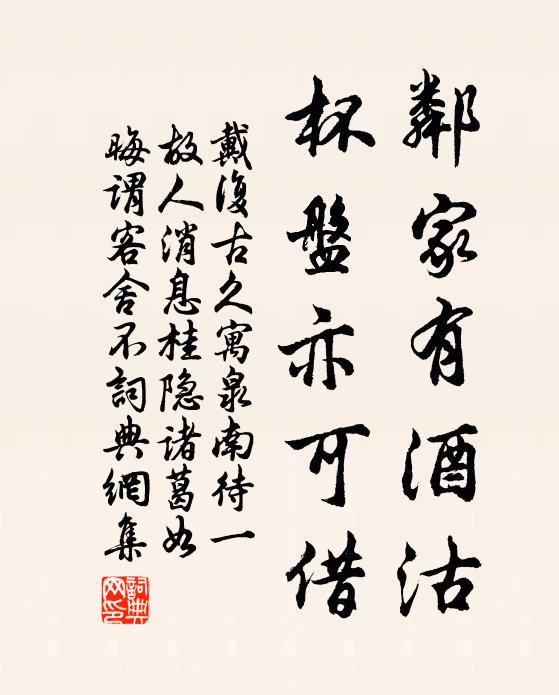 鄰家有酒沽
杯盤亦可借
戴復古久寓泉南待一
故人消息桂隐诸葛如
晦谓客舍不詞典網集
詞典網印